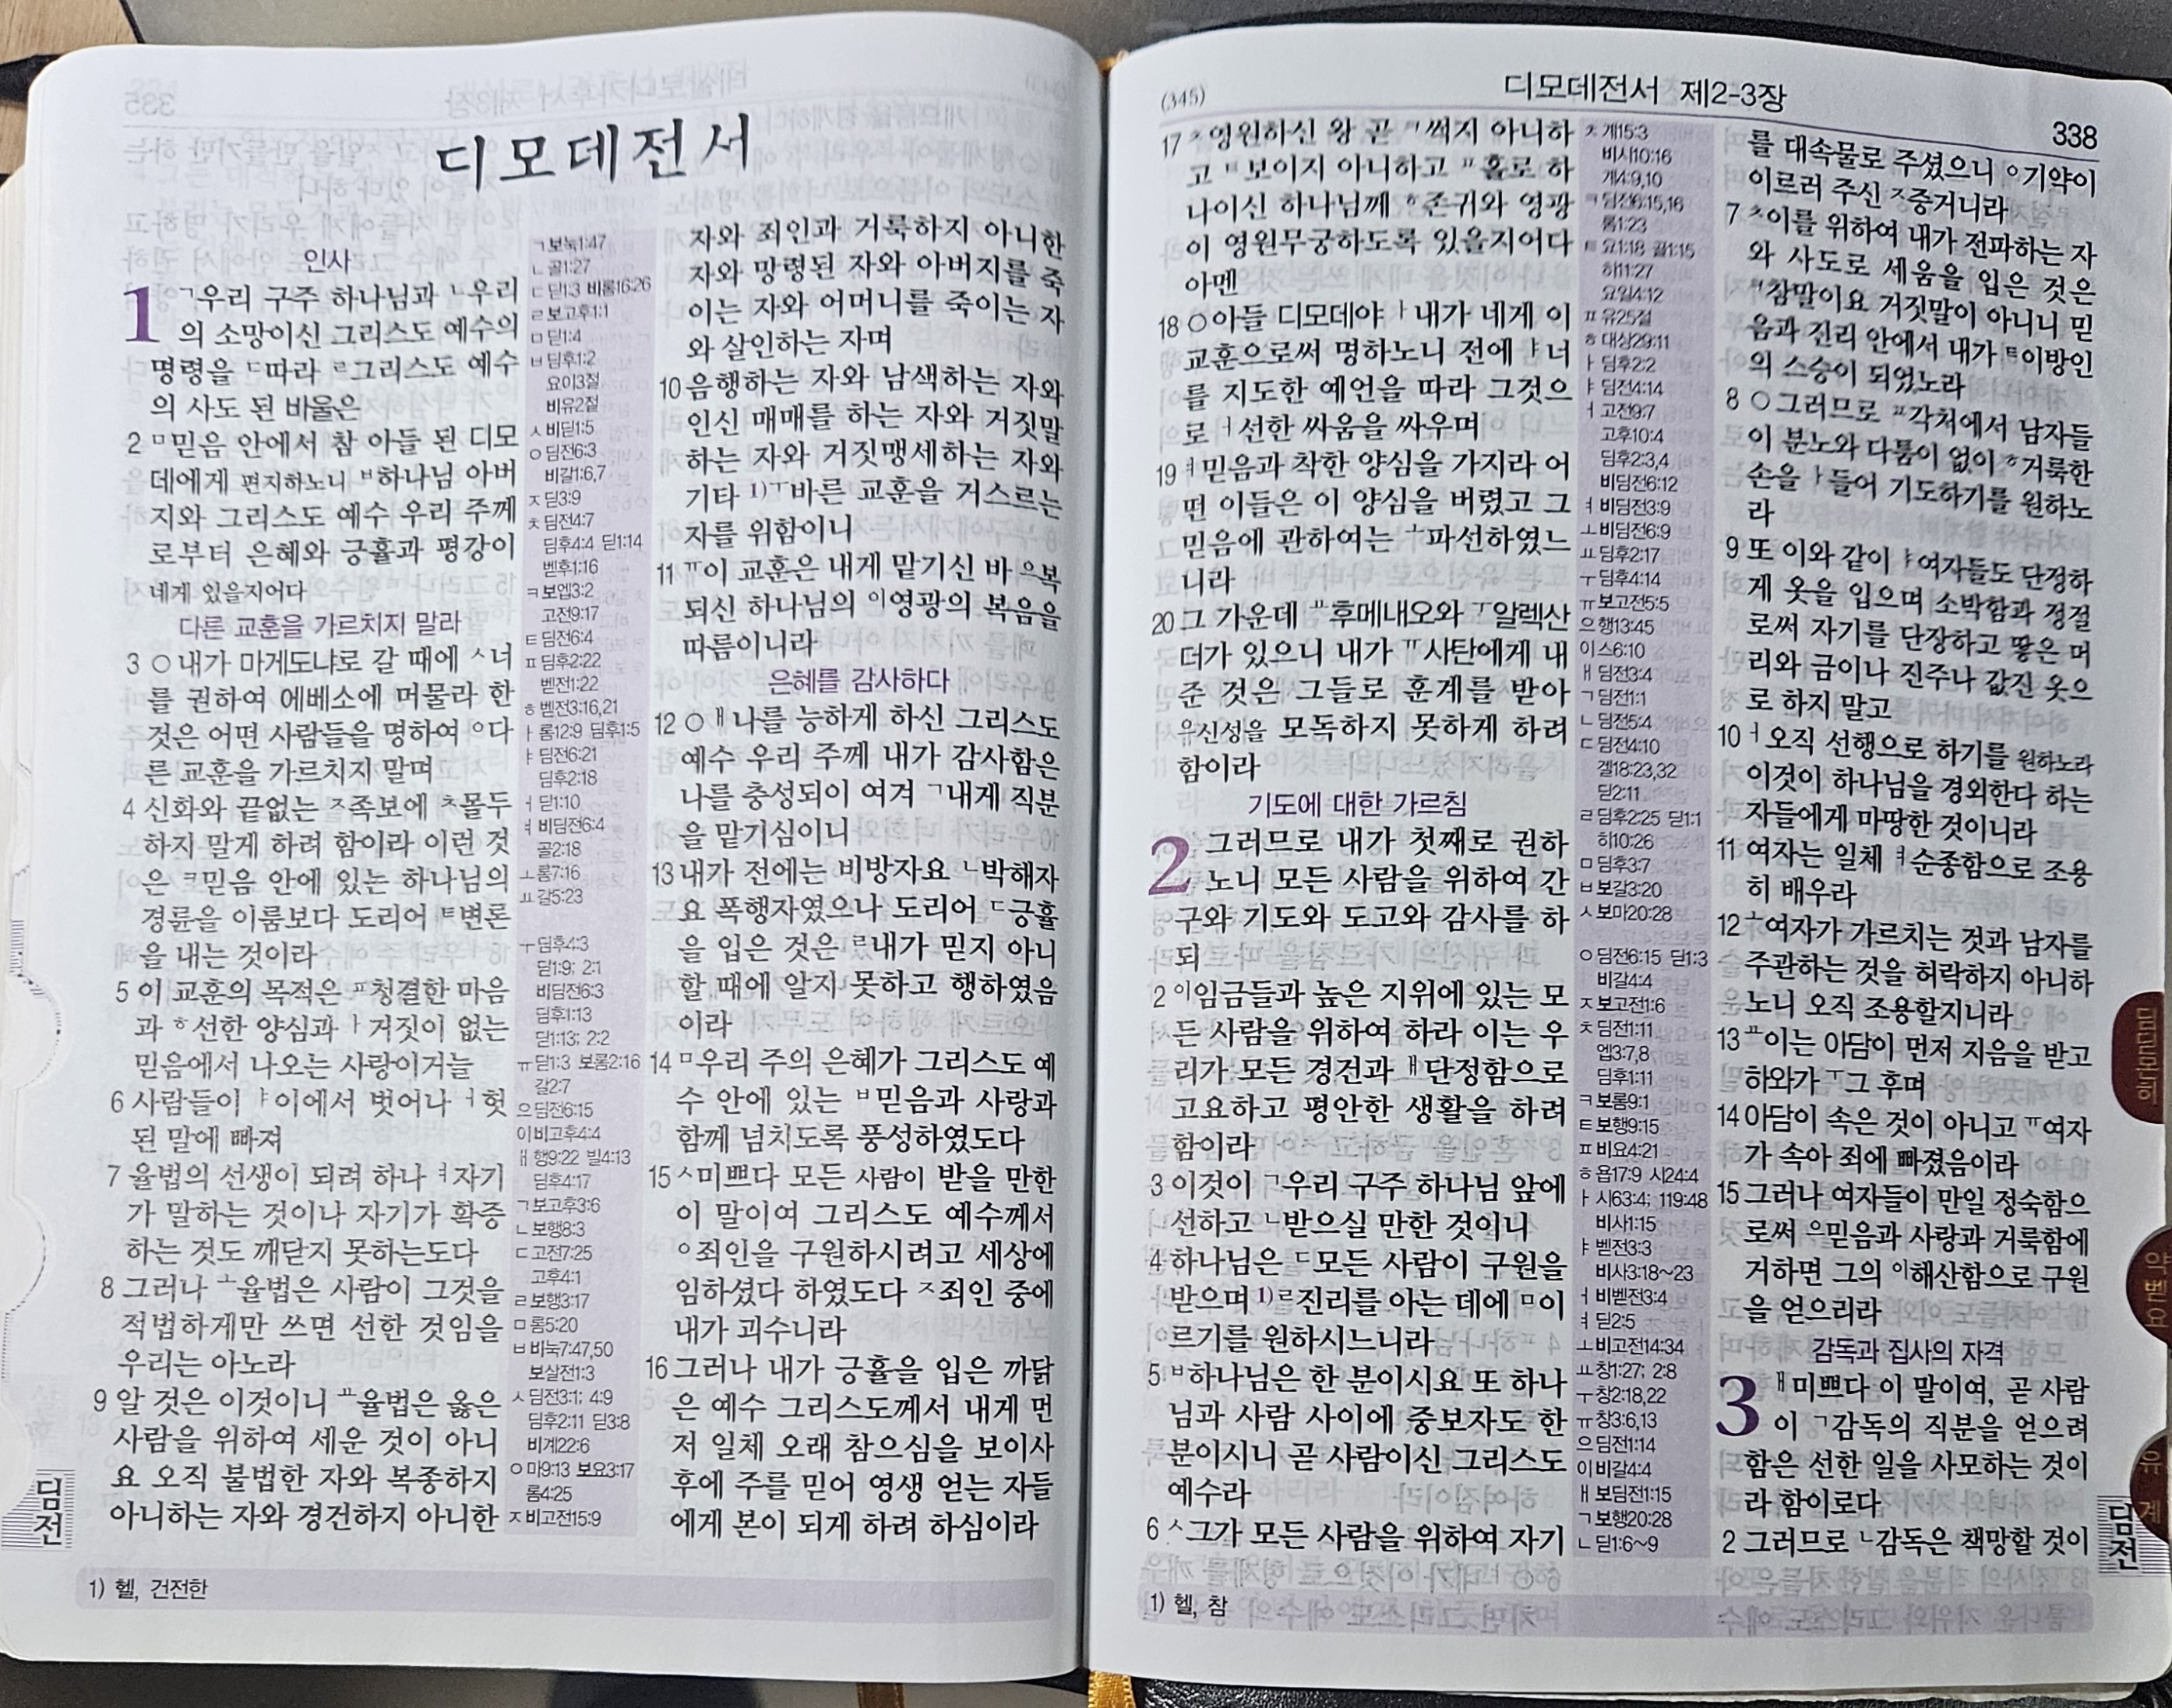 디모데전서
인사
1 ㄱ우리 구주 하나님과 ㄴ우리
의 소망이신 그리스도 예수의
명령을 ㄷ따라 ㄹ그리스도 예수
의 사도 된 바울은
2 ㅁ믿음 안에서 참 아들 된 디모
데에게 편지하노니 ㅂ하나님 아버
지와 그리스도 예수 우리 주께
로부터 은혜와 긍휼과 평강이
네게 있을지어다
다른 교훈을 가르치지 말라
3 ○내가 마게도냐로 갈 때에 ㅅ너
를 권하여 에베소에 머물라 한
것은 어떤 사람들을 명하여 ㅇ다
른 교훈을 가르치지 말며
4 신화와 끝없는 ㅈ족보에 ㅊ몰두
하지 말게 하려 함이라 이런 것
은 ㅋ믿음 안에 있는 하나님의
경륜을 이룸보다 도리어 ㅌ변론
을 내는 것이라
5 이 교훈의 목적은 ㅍ청결한 마음
과 ㅎ선한 양심과 ㅏ거짓이 없는
믿음에서 나오는 사랑이거늘
6 사람들이 ㅑ이에서 벗어나 ㅓ헛
된 말에 빠져
7 율법의 선생이 되려 하나 ㅕ자기
가 말하는 것이나 자기가 확증
하는 것도 깨닫지 못하는도다
8 그러나 ㅗ율법은 사람이 그것을
적법하게만 쓰면 선한 것임을
우리는 아노라
9 알 것은 이것이니 ㅛ율법은 옳은
사람을 위하여 세운 것이 아니
요 오직 불법한 자와 복종하지
아니하는 자와 경건하지 아니한
ㄱ보눅1:47
ㄴ골1:27
ㄷ딛1:3 비롬16:26
ㄹ보고후1:1
ㅁ딛1:4
ㅂ딤후1:2
요이3절
비유2절
ㅅ비딛1:5
ㅇ딤전6:3
비갈1:6,7
ㅈ딛3:9
ㅊ딤전4:7
딤후4:4 딛1:14
벧후1:16
ㅋ보엡3:2
고전9:17
ㅌ딤전6:4
ㅍ딤후2:22
벧전1:22
ㅎ벧전3:16,21
ㅏ롬12:9 딤후1:5
ㅑ딤전6:21
딤후2:18
ㅓ딛1:10
ㅕ비딤전6:4
골2:18
ㅗ롬7:16
ㅛ갈5:23
ㅜ딤후4:3
딛1:9; 2:1
비딤전6:3
딤후1:13
딛1:13; 2:2
ㅠ딛1:3 보롬2:16
갈2:7
ㅡ딤전6:15
ㅣ비고후4:4
ㅐ행9:22 빌4:13
딤후4:17
ㄱ보고후3:6
ㄴ보행8:3
ㄷ고전7:25
고후4:1
ㄹ보행3:17
ㅁ롬5:20
ㅂ비눅7:47,50
보살전1:3
ㅅ딤전3:1; 4:9
딤후2:11 딛3:8
비계22:6
ㅇ마9:13 보요3:17
롬4:25
ㅈ비고전15:9
자와 죄인과 거룩하지 아니한
자와 망령된 자와 아버지를 죽
이는 자와 어머니를 죽이는 자
와 살인하는 자며
10 음행하는 자와 남색하는 자와
인신 매매를 하는 자와 거짓말
하는 자와 거짓맹세하는 자와
기타 1)ㅜ바른 교훈을 거스르는
자를 위함이니
11 ㅠ이 교훈은 내게 맡기신 바 ㅡ복
되신 하나님의 ㅣ영광의 복음을
따름이니라
은혜를 감사하다
12 ○ㅐ나를 능하게 하신 그리스도
예수 우리 주께 내가 감사함은
나를 충성되이 여겨 ㄱ내게 직분
을 맡기심이니
13 내가 전에는 비방자요 ㄴ박해자
요 폭행자였으나 도리어 ㄷ긍휼
을 입은 것은 ㄹ내가 믿지 아니
할 때에 알지 못하고 행하였음
이라
14 ㅁ우리 주의 은혜가 그리스도 예
수 안에 있는 ㅂ믿음과 사랑과
함께 넘치도록 풍성하였도다
15 ㅅ미쁘다 모든 사람이 받을 만한
이 말이여 그리스도 예수께서
ㅇ죄인을 구원하시려고 세상에
임하셨다 하였도다 ㅈ죄인 중에
내가 괴수니라
16 그러나 내가 긍휼을 입은 까닭
은 예수 그리스도께서 내게 먼
저 일체 오래 참으심을 보이사
후에 주를 믿어 영생 얻는 자들
에게 본이 되게 하려 하심이라
딤전
1) 헬, 건전한
(345)
디모데전서 제2-3장
338
17 ㅊ영원하신 왕 곧 ㅋ썩지 아니하
고 ㅌ보이지 아니하고 ㅍ홀로 하
나이신 하나님께 ㅎ존귀와 영광
이 영원무궁하도록 있을지어다
아멘
18 ○아들 디모데야 ㅏ내가 네게 이
교훈으로써 명하노니 전에 ㅑ너
를 지도한 예언을 따라 그것으
로 ㅓ선한 싸움을 싸우며
19 ㅕ믿음과 착한 양심을 가지라 어
떤 이들은 이 양심을 버렸고 그
믿음에 관하여는 ㅗ파선하였느
니라
20 그 가운데 ㅛ후메내오와 ㅜ알렉산
더가 있으니 내가 ㅠ사탄에게 내
준 것은 그들로 훈계를 받아
신성을 모독하지 못하게 하려
함이라
기도에 대한 가르침
2 그러므로 내가 첫째로 권하
노니 모든 사람을 위하여 간
구와 기도와 도고와 감사를 하
되
2 ㅣ임금들과 높은 지위에 있는 모
든 사람을 위하여 하라 이는 우
리가 모든 경건과 ㅐ단정함으로
고요하고 평안한 생활을 하려
함이라
3 이것이 ㄱ우리 구주 하나님 앞에
선하고 ㄴ받으실 만한 것이니
4 하나님은 ㄷ모든 사람이 구원을
받으며 1)ㄹ진리를 아는 데에 ㅁ이
르기를 원하시느니라
5 ㅂ하나님은 한 분이시요 또 하나
님과 사람 사이에 중보자도 한
분이시니 곧 사람이신 그리스도
예수라
6 ㅅ그가 모든 사람을 위하여 자기
ㅊ계15:3
비시10:16
계4:9,10
ㅋ딤전6:15,16
롬1:23
ㅌ요1:18 골1:15
히11:27
요일4:12
ㅍ유25절
ㅎ대상29:11
ㅏ딤후2:2
ㅑ딤전4:14
ㅓ고전9:7
고후10:4
딤후2:3,4
비딤전6:12
ㅕ비딤전3:9
ㅗ비딤전6:9
ㅛ딤후2:17
ㅜ딤후4:14
ㅠ보고전5:5
ㅡ행13:45
ㅣ스6:10
ㅐ딤전3:4
ㄱ딤전1:1
ㄴ딤전5:4
ㄷ딤전4:10
겔18:23,32
딛2:11
ㄹ딤후2:25 딛1:1
히10:26
ㅁ딤후3:7
ㅂ보갈3:20
ㅅ보마20:28
ㅇ딤전6:15 딛1:3
비갈4:4
ㅈ보고전1:6
ㅊ딤전1:11
엡3:7,8
딤후1:11
ㅋ보롬9:1
ㅌ보행9:15
ㅍ비요4:21
ㅎ욥17:9 시24:4
ㅏ시63:4; 119:48
비사1:15
ㅑ벧전3:3
비사3:18~23
ㅓ비벧전3:4
ㅕ딛2:5
ㅗ비고전14:34
ㅛ창1:27; 2:8
ㅜ창2:18,22
ㅠ창3:6,13
ㅡ딤전1:14
ㅣ비갈4:4
ㅐ보딤전1:15
ㄱ보행20:28
ㄴ딛1:6~9
를 대속물로 주셨으니 ㅇ기약이
이르러 주신 ㅈ증거니라
7 ㅊ이를 위하여 내가 전파하는 자
와 사도로 세움을 입은 것은
ㅋ참말이요 거짓말이 아니니 믿
음과 진리 안에서 내가 ㅌ이방인
의 스승이 되었노라
8 ○그러므로 ㅍ각처에서 남자들
이 분노와 다툼이 없이 ㅎ거룩한
손을 ㅏ들어 기도하기를 원하노
라
9 또 이와 같이 ㅑ여자들도 단정하
게 옷을 입으며 소박함과 정절
로써 자기를 단장하고 땋은 머
리와 금이나 진주나 값진 옷으
로 하지 말고
10 ㅓ오직 선행으로 하기를 원하노라
이것이 하나님을 경외한다 하는
자들에게 마땅한 것이니라
11 여자는 일체 ㅕ순종함으로 조용
히 배우라
12 ㅗ여자가 가르치는 것과 남자를
주관하는 것을 허락하지 아니하
노니 오직 조용할지니라
13 ㅛ이는 아담이 먼저 지음을 받고
하와가 ㅜ그 후며
14 아담이 속은 것이 아니고 ㅠ여자
가 속아 죄에 빠졌음이라
15 그러나 여자들이 만일 정숙함으
로써 ㅡ믿음과 사랑과 거룩함에
거하면 그의 ㅣ해산함으로 구원
을 얻으리라
감독과 집사의 자격
3 ㅐ미쁘다 이 말이여, 곧 사람
이 ㄱ감독의 직분을 얻으려
함은 선한 일을 사모하는 것이
라 함이로다
2 그러므로 ㄴ감독은 책망할 것이
딤전
1) 헬, 참
딤딛몬히
약벧요
유계